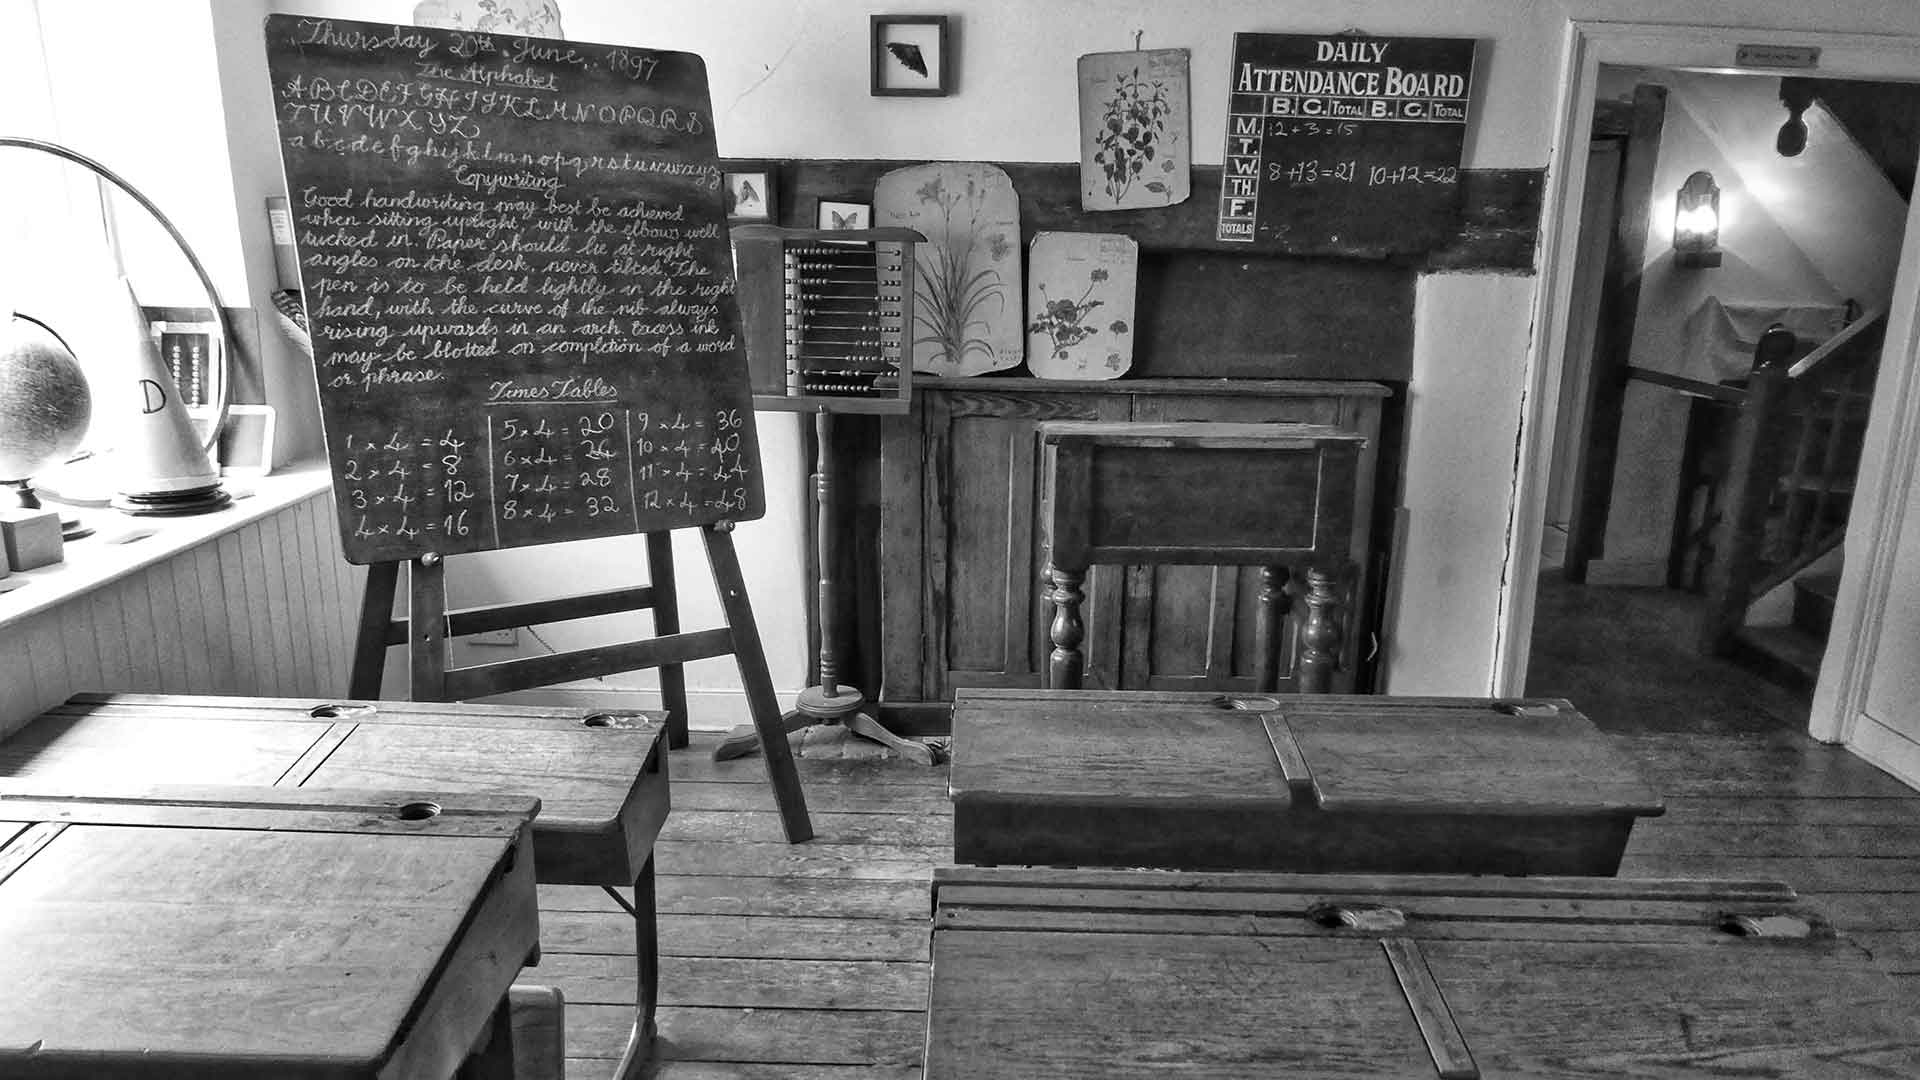 Thursday 20th. June, 1897
The Alphabet
A B C D E F G H I J K L M N O P Q R S
T U V W X Y Z
a b c d e f g h i j k l m n o p q r s t u v w x y z
Copywriting
Good handwriting may best be achieved
when sitting upright, with the elbows well
tucked in. Paper should lie at right
angles on the desk, never tilted. The
pen is to be held lightly in the right
hand, with the curve of the nib always
rising upwards in an arch. Excess ink
may be blotted on completion of a word
or phrase.
Times Tables
1 × 4 = 4
2 × 4 = 8
3 × 4 = 12
4 × 4 = 16
5 × 4 = 20
6 × 4 = 24
7 × 4 = 28
8 × 4 = 32
9 × 4 = 36
10 × 4 = 40
11 × 4 = 44
12 × 4 = 48
D
DAILY
ATTENDANCE BOARD
B. G. TOTAL B. G. TOTAL
M. 12 + 3 = 15
T.
W. 8 + 13 = 21 10 + 12 = 22
TH.
F.
TOTALS